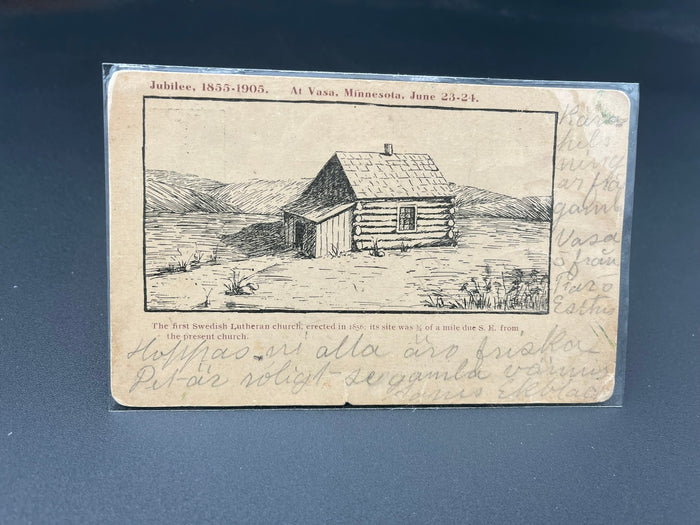 Jubilee, 1855-1905. At Vasa, Minnesota, June 23-24.
Kära
hels
ning
ar frå
gaml
Vasa
o från
Esther
The first Swedish Lutheran church, erected in 1856; its site was ¾ of a mile due S. E. from
the present church.
Hoppas vi alla äro friska
Det är roligt se gamla vänner
Ekblad